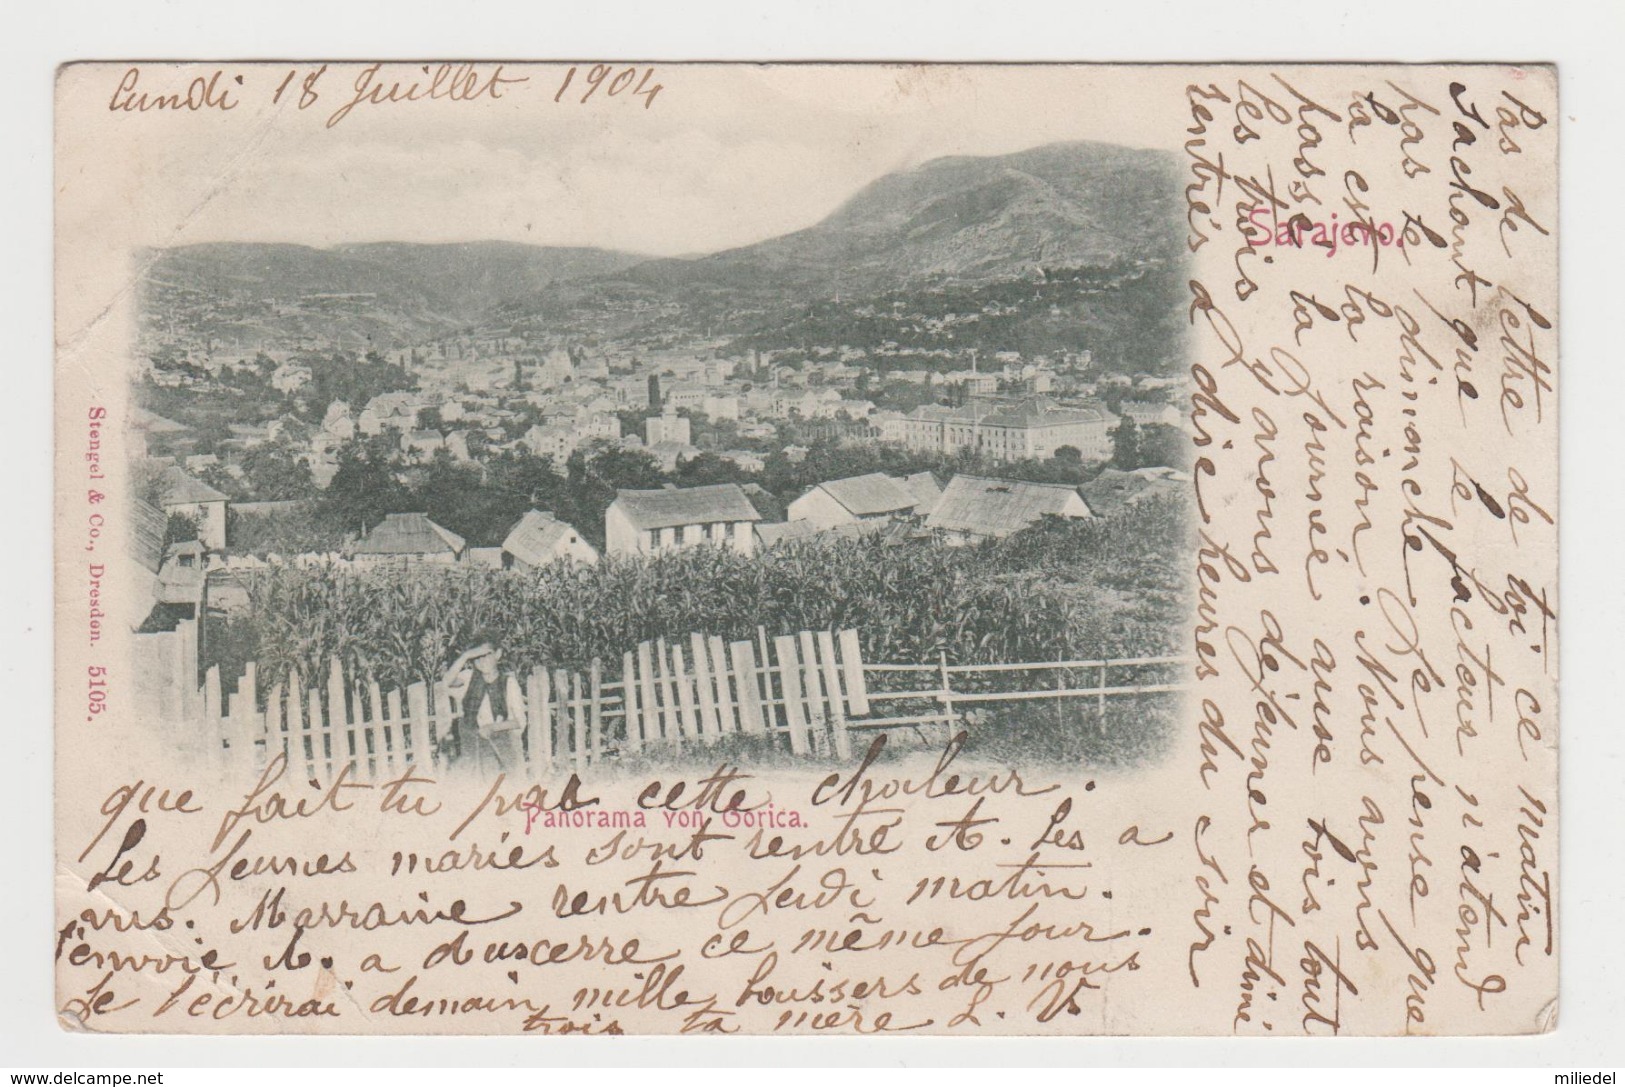 Lundi 18 Juillet 1904
Pas de lettre de toi ce matin
sachant que le facteur n'atend
pas le dimenche Je pense que
la est la raison. Nous avons
passé la Journée ause bois tout
les trois y avons déjeuner et diné
rentrés a disc heures du soir
Sarajevo.
Stengel & Co., Dresden. 5105.
Panorama von Gorica.
que fait tu par cette chaleur.
Les Jeunes mariés sont rentré A. Les a
vus. Marraine rentre Jeudi matin.
J'envoie A. a Auxcerre ce même Jour.
Je t'écrirai demain, mille boussers de nous
trois ta mère L. V.
www.delcampe.net
miliedel